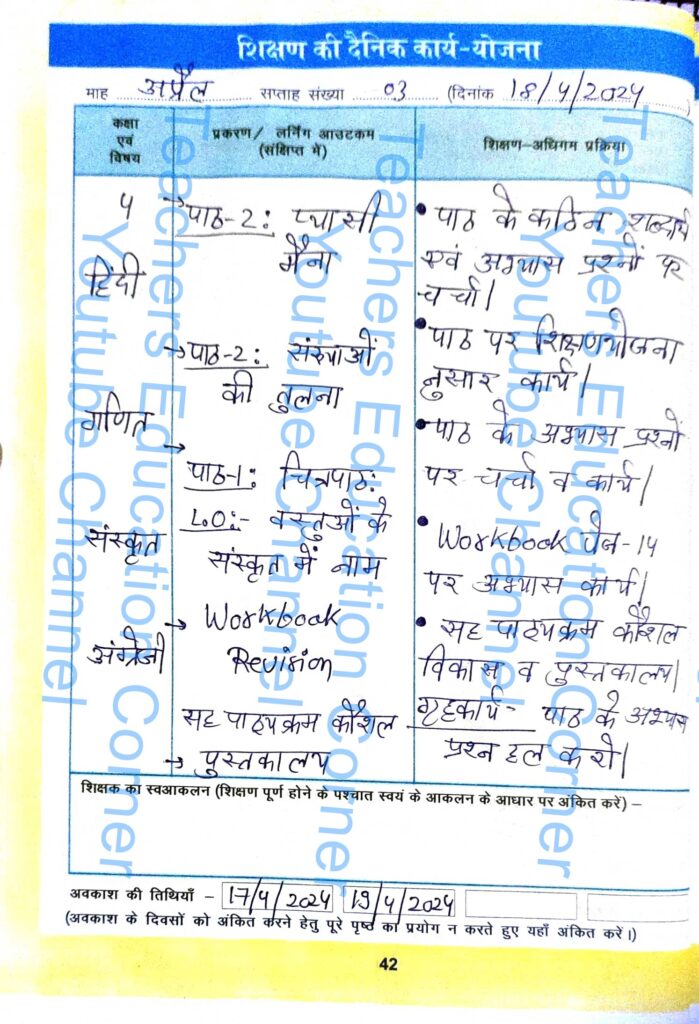 शिक्षण की दैनिक कार्य-योजना
माह अप्रैल सप्ताह संख्या 03 (दिनांक 18/4/2024)
कक्षा एवं विषय
प्रकरण/ लर्निंग आउटकम
(संक्षिप्त में)
शिक्षण-अधिगम प्रक्रिया
५
हिंदी
गणित
संस्कृत
अंग्रेजी
→ पाठ-2: प्यासी
मैना
→ पाठ-2: संख्याओं
की तुलना
→
पाठ-1: चित्रपाठ:
L.O:- वस्तुओं के
संस्कृत में नाम
→ Workbook
Revision
सह पाठ्यक्रम कौशल
→ पुस्तकालय
• पाठ के कठिन शब्दार्थ
एवं अभ्यास प्रश्नों पर
चर्चा।
• पाठ पर शिक्षणयोजना
नुसार कार्य।
• पाठ के अभ्यास प्रश्नों
पर चर्चा व कार्य।
• Workbook पेज-14
पर अभ्यास कार्य।
• सह पाठ्यक्रम कौशल
विकास व पुस्तकालय।
गृहकार्य- पाठ के अभ्यास
प्रश्न हल करो।
शिक्षक का स्वआकलन (शिक्षण पूर्ण होने के पश्चात स्वयं के आकलन के आधार पर अंकित करे) –
अवकाश की तिथियाँ – 17/4/2024 19/4/2024
(अवकाश के दिवसों को अंकित करने हेतु पूरे पृष्ठ का प्रयोग न करते हुए यहाँ अंकित करें।)
42
Teachers Education Corner
Youtube Channel
Teachers Education Corner
Youtube Channel
Teachers Education Corner
Youtube Channel